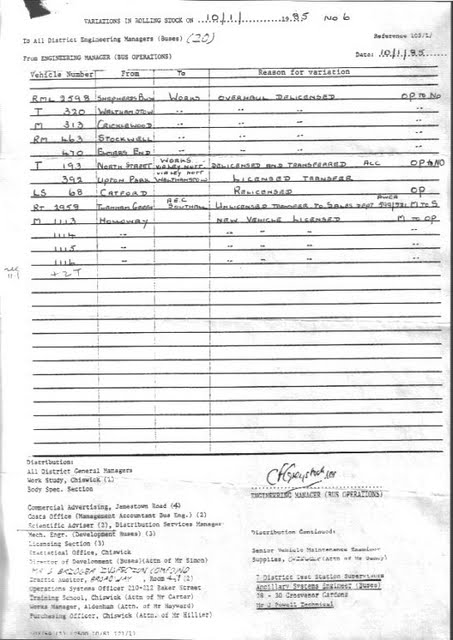 VARIATIONS IN ROLLING STOCK ON 10/1/ 1985 No 6
To All District Engineering Managers (Buses) (20) Reference 103/1/
From ENGINEERING MANAGER (BUS OPERATIONS) Date: 10/1/85
Vehicle Number From To Reason for variation
RML 2598 SHEPHERDS BUSH WORKS OVERHAUL DELICENSED OP TO NO
T 320 WALTHAMSTOW " " " "
M 313 CRICKLEWOOD " " " "
RM 463 STOCKWELL " " " "
470 ELMERS END " " " "
T 193 NORTH STREET WORKS - DELICENSED AND TRANSFERRED ALC OP TO NO
392 UPTON PARK WALTHAMSTOW LICENSED TRANSFER
LS 68 CATFORD RELICENSED OP
RT 1959 TURNHAM GREEN A.E.C. SOUTHALL UNLICENSED TRANSFER TO SALES DEPT M TO S
M 1113 HOLLOWAY NEW VEHICLE LICENSED M TO OP
1114 " " " "
1115 " " " "
1116 " " " "
+2T
Distribution:
All District General Managers
Work Study, Chiswick (1)
Body Spec. Section
ENGINEERING MANAGER (BUS OPERATIONS)
Commercial Advertising, Jamestown Road (4)
Costs Office (Management Accountant Bus Eng.) (2)
Scientific Adviser (2), Distribution Services Manager
Mech. Engr. (Development Buses) (3)
Licensing Section (3)
Statistical Office, Chiswick
Director of Development (Buses)(Attn of Mr Simon)
Traffic Auditor, BROADWAY, Room
Operations Systems Officer 210-212 Baker Street
Training School, Chiswick (Attn of Mr Carter)
Works Manager, Aldenham (Attn. of Mr Hayward)
Purchasing Officer, Chiswick (Attn of Mr Hillier)
Distribution Continued:
Senior Vehicle Maintenance Examiner
Supplies, (Attn of Mr
7 District Test Station Supervisors
Ancillary Systems Engineer (Buses)
28 - 30 Grosvenor Gardens
Mr J Powell Technical